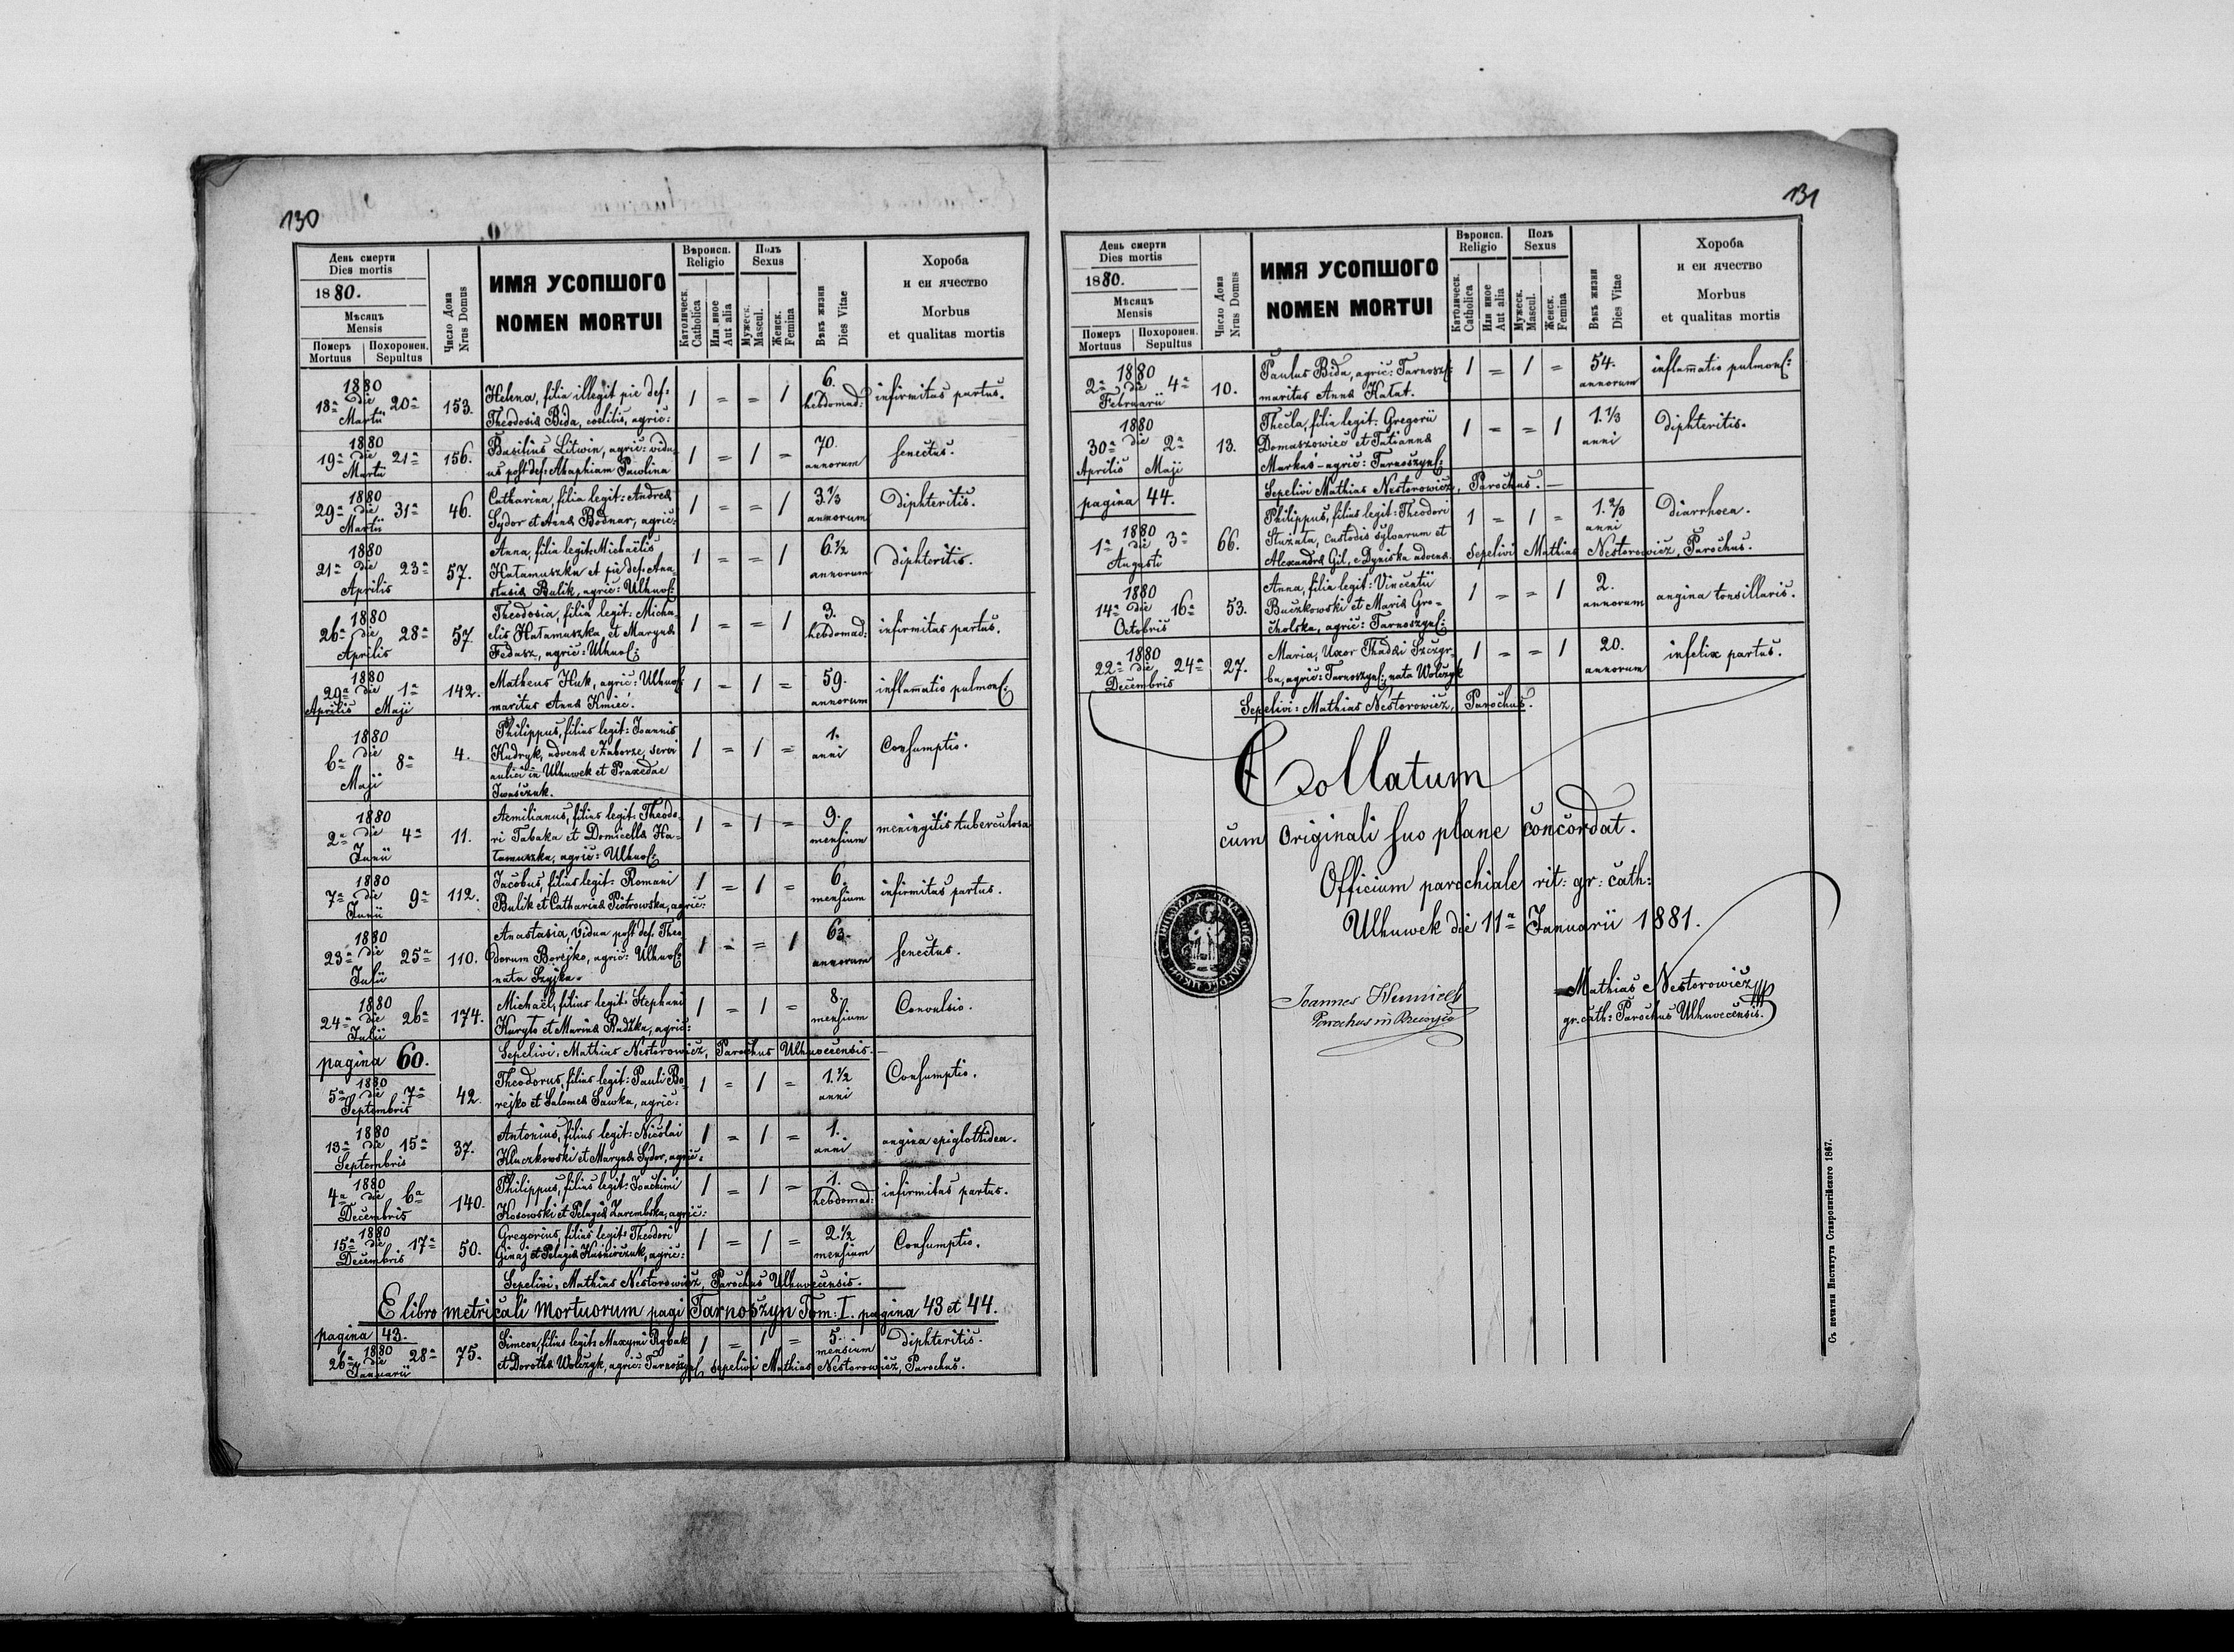 130
День смерти
Dies mortis
1880.
Мѣсяць
Mensis
Померъ Похоронен.
Mortuus Sepultus
Число Дома
Nrus Domus
ИМЯ УСОПШОГО
NOMEN MORTUI
Вѣроисп.
Religio
Католическ.
Catholica
Или иное
Aut alia
Полъ
Sexus
Мужеск.
Mascul.
Женск.
Femina
Вѣкъ жизни
Dies Vitae
Хороба
и еи ячество
Morbus
et qualitas mortis
1880
18ª die 20ª
Martii
153.
Helena, filia illegit pie def:
Theodosiä Bida, coelibis, agric:
1 = = 1
6.
hebdomad:
infirmitas partus.
1880
19ª die 21ª
Martii
156.
Basilius Litwin, agric: vidu-
us post def: Ahaphiam Pawlina
1 = 1 =
70.
annorum
senectus.
1880
29ª die 31ª
Martii
46.
Catharina, filia legit: Andreä
Sydor et Annä Bodnar, agric:
1 = = 1
3 1/3
annorum
Diphteritis.
1880
21ª die 23ª
Aprilis
57.
Anna, filia legit: Michaëlis
Hałamuszka et pie def: Ana-
stasiä Bulik, agric: Ulhuof:
1 = = 1
6 1/2
annorum
diphteritis.
1880
26ª die 28ª
Aprilis
57
Theodosia, filia legit: Micha-
elis Hałamuszka, et Marynä
Fedasz, agric: Ulhuof:
1 = = 1
3.
hebdomad:
infirmitas partus.
1880
29ª die 1ª
Aprilis Maji
142.
Matheus Huk, agric: Ulhuof:
maritus Annä Kmieć.
1 = 1 =
59.
annorum
inflamatio pulmonf:
1880
6ª die 8ª
Maji
4.
Philippus, filius legit: Joannis
Kudryk, advenä e Zaborze, servi
aulici in Ulhuwek et Praxedae
Iwaśczuk.
1 = 1 =
1.
anni
Consumptio.
1880
2ª die 4ª
Junii
11.
Aemilianus, filius legit: Theodo-
ri Tabaka et Domicellä Ha-
łamuszka, agric: Ulhuof:
1 = 1 =
9.
mensium
meningitis tuberculosa
1880
7ª die 9ª
Junii
112.
Jacobus, filius legit: Romani
Bulik et Catharinä Piotrowska, agric:
1 = 1 =
6.
mensium
infirmitas partus.
1880
23ª die 25ª
Julii
110.
Anastasia, Vidua post def: Theo-
dorum Borejko, agric: Ulhuof:
nata Szyjka.
1 = = 1
63.
annorum
senectus.
1880
24ª die 26ª
Julii
174.
Michaël, filius legit: Stephani
Kuryło et Mariaä Rudzka, agric:
1 = 1 =
8.
mensium
Convulsio.
pagina 60.
Sepelivi: Mathias Nestorowicz, Parochus Ulhuvecensis.
1880
5ª die 7ª
Septembris
42.
Theodorus, filius legit: Pauli Bo-
rejko et Salomeä Sawka, agric:
1 = 1 =
1.1/2
anni
Consumptio.
1880
13ª die 15ª
Septembris
37.
Antonius, filius legit: Nicolai
Kluczkowski et Marynä Sydor, agric:
1 = 1 =
1.
anni
angina epiglottidea.
1880
4ª die 6ª
Decembris
140.
Philippus, filius legit: Joachimi
Kosowski et Pelagiä Zarembska, agric:
1 = 1 =
1.
hebdomad:
infirmitas partus.
1880
15ª die 17ª
Decembris
50.
Gregorius, filius legit: Theodori
Ginaj et Pelagiä Kusnirczuk, agric:
1 = 1 =
2.1/2
mensium
Consumptio.
Sepelivi: Mathias Nestorowicz, Parochus Ulhuvecensis.
E libro metricali Mortuorum pagi Tarnoszyn Tom: I. pagina 43 et 44.
pagina 43.
1880
26ª die 28ª
Januarii
75.
Simeon, filius legit: Maxymi Rybak
et Dorothä Wolczyk, agric: Tarnoszynf: sepelivi Mathias Nestorowicz, Parochus.
1 = 1 =
5.
mensium
diphteritis.
131
День смерти
Dies mortis
1880.
Мѣсяць
Mensis
Померъ Похоронен.
Mortuus Sepultus
Число Дома
Nrus Domus
ИМЯ УСОПШОГО
NOMEN MORTUI
Вѣроисп.
Religio
Католическ.
Catholica
Или иное
Aut alia
Полъ
Sexus
Мужеск.
Mascul.
Женск.
Femina
Вѣкъ жизни
Dies Vitae
Хороба
и еи ячество
Morbus
et qualitas mortis
1880
2ª die 4ª
Februarii
10.
Paulus Bida, agric: Tarnoszf:
maritus Annä Hałat.
1 = 1 =
54.
annorum
inflamatio pulmonf:
1880
30ª die 2ª
Aprilis Maji
13.
Thecla, filia legit: Gregorii
Domaszowiec et Tatiannä
Markuś - agric: Tarnoszynf:
1 = = 1
1.1/3
anni
diphteritis.
pagina 44.
Sepelivi Mathias Nestorowicz, Parochus. —
1880
1ª die 3ª
Augusti
66.
Philippus, filius legit: Theodori
Stużała, custodis sylvarum et
Alexandrä Gil, e Dyniska advenä. Sepelivi Mathias Nestorowicz, Parochus.
1 = 1 =
1.2/3
anni
Diarrhoea.
1880
14ª die 16ª
Octobris
53.
Anna, filia legit: Vincentii
Buczkowski et Mariä Gro-
cholska, agric: Tarnoszynf:
1 = = 1
2.
annorum
angina tonsillaris.
1880
22ª die 24ª
Decembris
27.
Maria, Uxor Thadäi Szczyr-
ba, agric: Tarnoszynf:, nata Wolczyk
1 = = 1
20.
annorum
infelix partus.
Sepelivi: Mathias Nestorowicz, Parochus.
Collatum
cum Originali suo plane concordat.
Officium parochiale rit: gr: cath:
Ulhuwek die 11ª Januarii 1881.
Joannes
Parochus in
Mathias Nestorowicz
gr. cath: Parochus Ulhuvecensis.
Съ печатни Института Ставропигійского 1867.